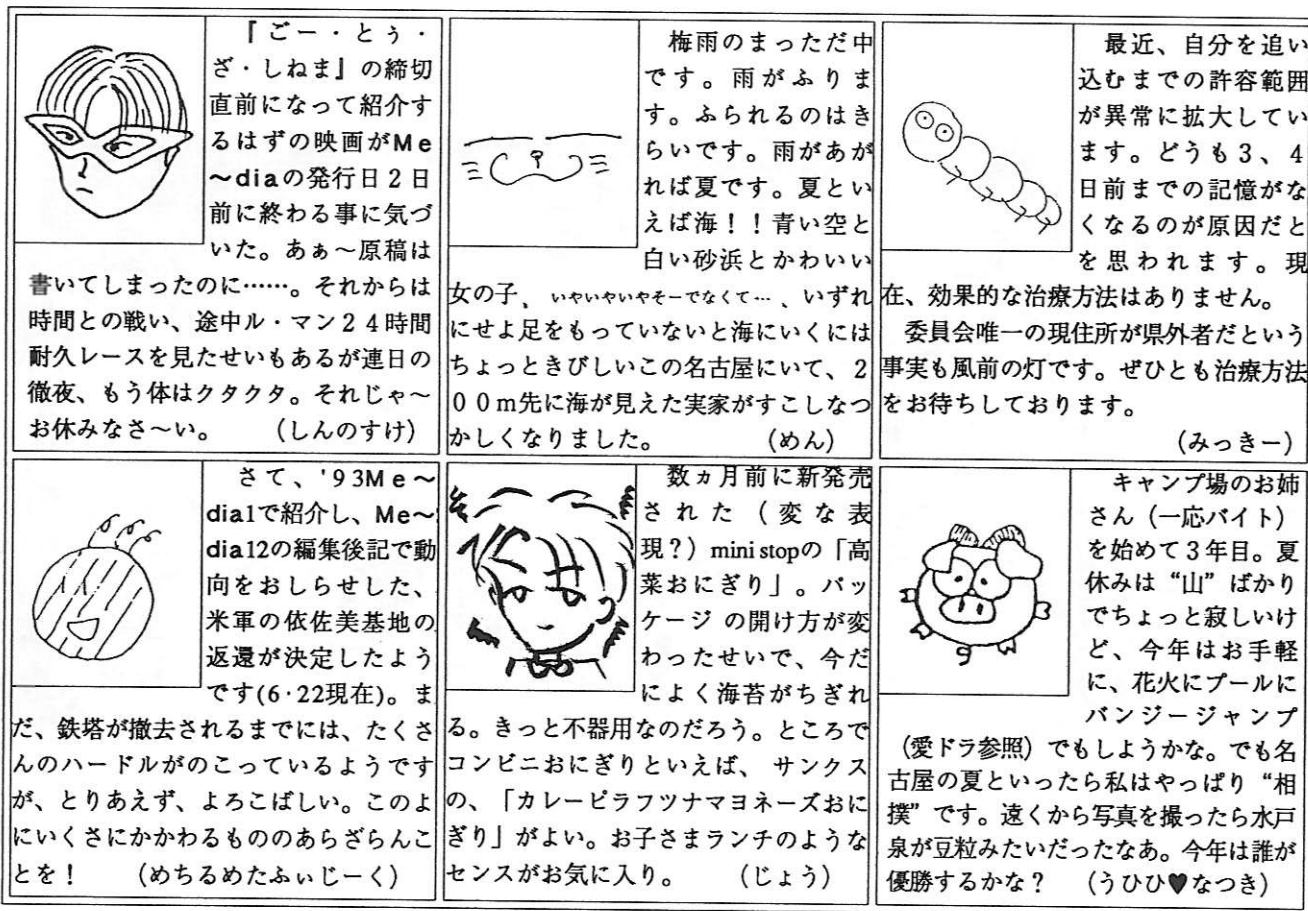 『ごー・とぅ・
ざ・しねま』の締切
直前になって紹介す
るはずの映画がＭｅ
～ｄｉａの発行日２日
前に終わる事に気づ
いた。あぁ～原稿は
書いてしまったのに……。それからは
時間との戦い、途中ル・マン２４時間
耐久レースを見たせいもあるが連日の
徹夜、もう体はクタクタ。それじゃ～
お休みなさ～い。　（しんのすけ）
梅雨のまっただ中
です。雨がふりま
す。ふられるのはき
らいです。雨があが
れば夏です。夏とい
えば海！！青い空と
白い砂浜とかわいい
女の子、いやいやいやそーでなくて…、いずれ
にせよ足をもっていないと海にいくには
ちょっときびしいこの名古屋にいて、２
００ｍ先に海が見えた実家がすこしなつ
かしくなりました。　（めん）
最近、自分を追い
込むまでの許容範囲
が異常に拡大してい
ます。どうも３、４
日前までの記憶がな
くなるのが原因だと
を思われます。現
在、効果的な治療方法はありません。
委員会唯一の現住所が県外者だという
事実も風前の灯です。ぜひとも治療方法
をお待ちしております。
（みっきー）
さて、'９３Ｍｅ～
dia1で紹介し、Me～
dia12の編集後記で動
向をおしらせした、
米軍の依佐美基地の
返還が決定したよう
です(6･22現在)。ま
だ、鉄塔が撤去されるまでには、たくさ
んのハードルがのこっているようです
が、とりあえず、よろこばしい。このよ
にいくさにかかわるもののあらざらんこ
とを！　（めちるめたふぃじーく）
数ヵ月前に新発売
された（変な表
現？）mini stopの「高
菜おにぎり」。パッ
ケージ の開け方が変
わったせいで、今だ
によく海苔がちぎれ
る。きっと不器用なのだろう。ところで
コンビニおにぎりといえば、 サンクス
の、「カレーピラフツナマヨネーズおに
ぎり」がよい。お子さまランチのような
センスがお気に入り。　（じょう）
キャンプ場のお姉
さん（一応バイト）
を始めて３年目。夏
休みは“山”ばかり
でちょっと寂しいけ
ど、今年はお手軽
に、花火にプールに
バンジージャンプ
（愛ドラ参照）でもしようかな。でも名
古屋の夏といったら私はやっぱり“相
撲”です。遠くから写真を撮ったら水戸
泉が豆粒みたいだったなあ。今年は誰が
優勝するかな？　（うひひ♥なつき）